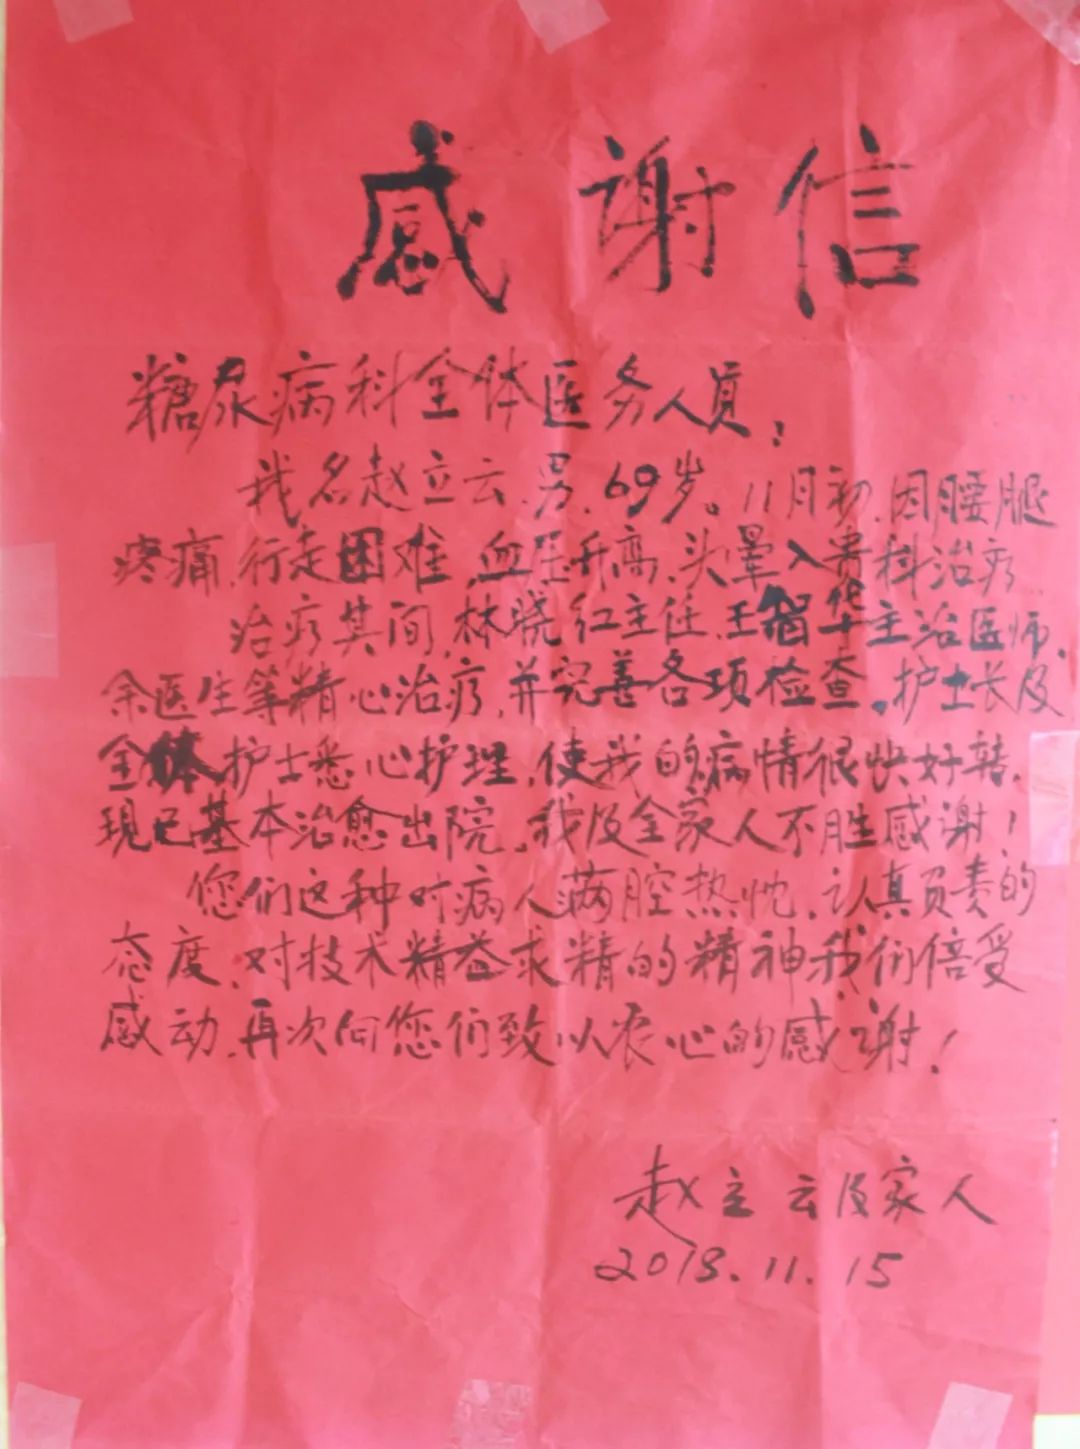 感谢信
糖尿病科全体医务人员：
我名赵立云、男、69岁。11月初、因腰腿
疼痛、行走困难、血压升高、头晕入贵科治疗
治疗其间、林晓红主任、王智华主治医师、
余医生等精心治疗、并完善各项检查。护士长及
全体护士悉心护理、使我的病情很快好转、
现已基本治愈出院。我及全家人不胜感谢！
您们这种对病人满腔热忱、认真负责的
态度、对技术精益求精的精神我们倍受
感动、再次向您们致以衷心的感谢！
赵立云及家人
2018.11.15